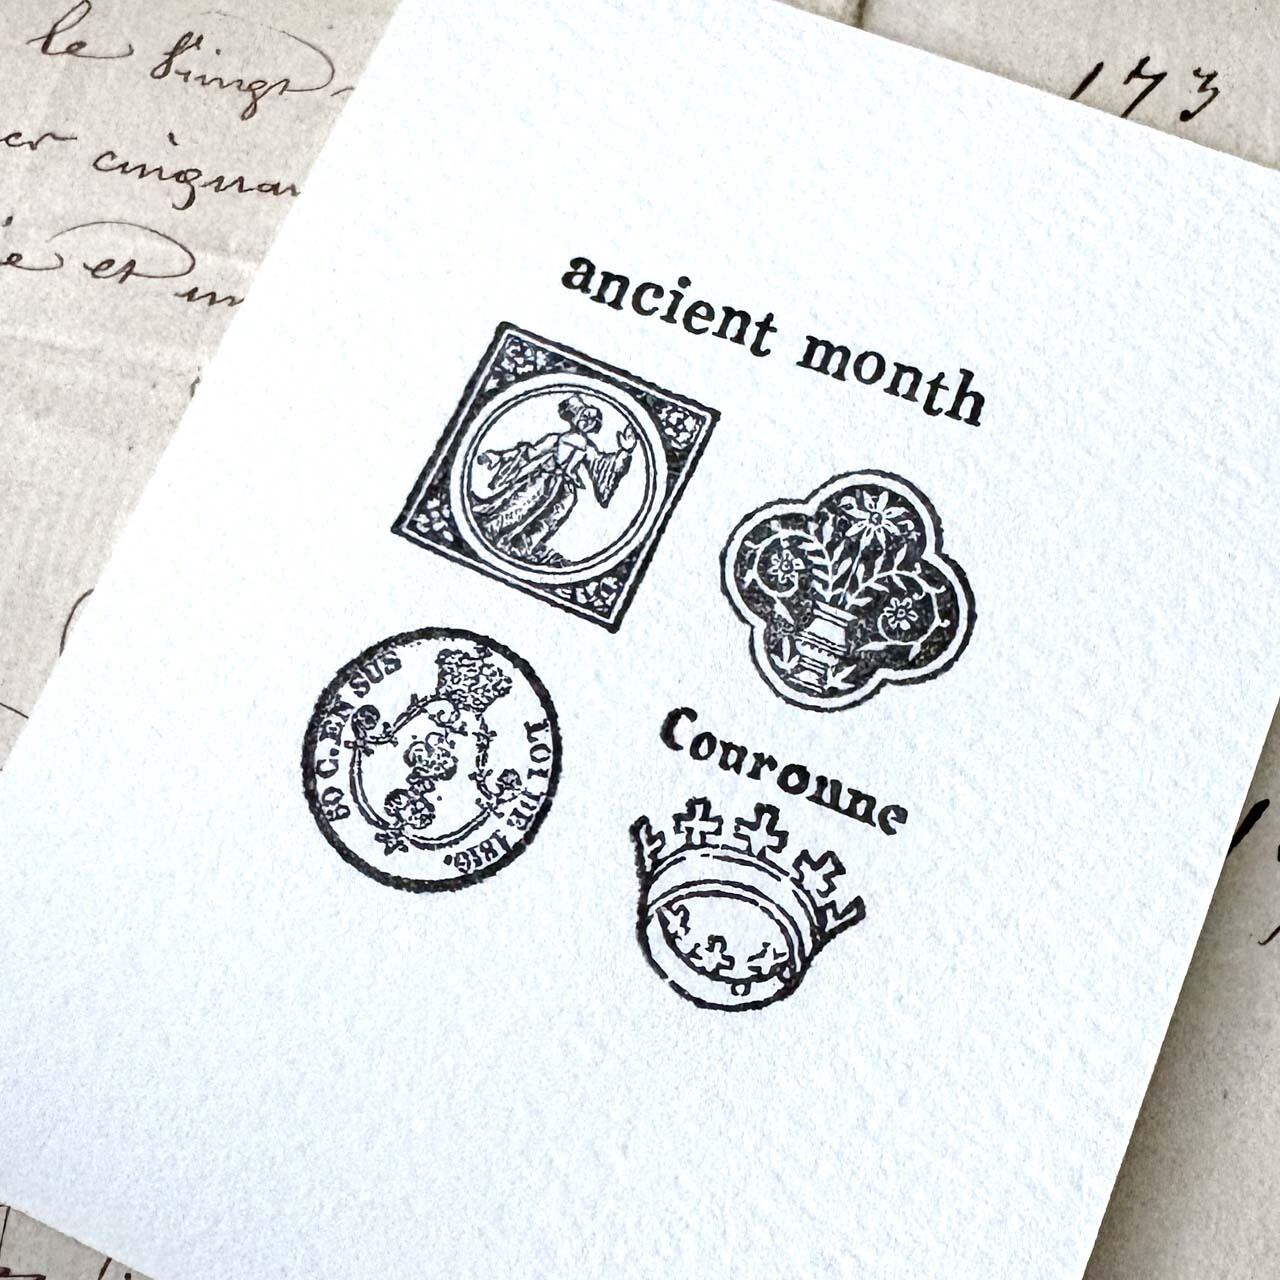 le Vingt
173
cinquan
et un
ancient month
50 C. EN SUS
LOI DE 1816.
Couronne